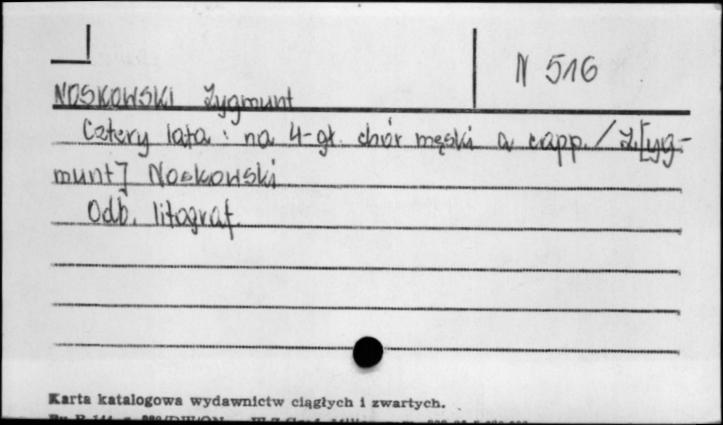 N 516
NOSKOWSKI Zygmunt
Cztery lata : na 4-gł. chór męski a capp. / Z[yg-
munt] Noskowski
Odb. litograf.
Karta katalogowa wydawnictw ciągłych i zwartych.